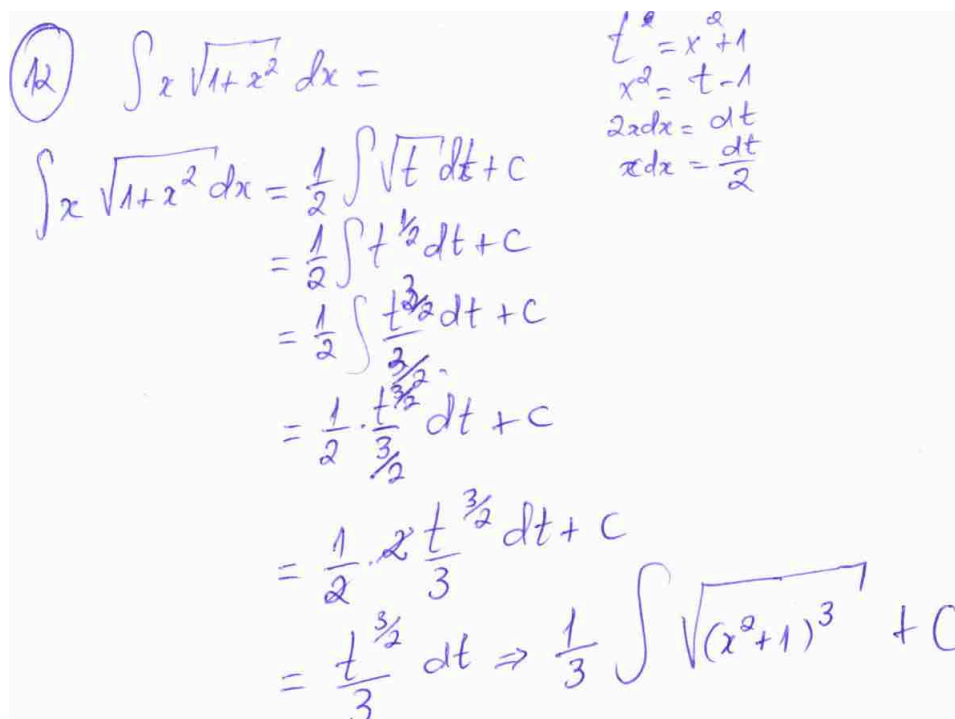 12 ∫ x √(1+x²) dx =
t² = x²+1
x² = t-1
2xdx = dt
xdx = dt/2
∫ x √(1+x²) dx = 1/2 ∫ √t dt + C
= 1/2 ∫ t^(1/2) dt + C
= 1/2 ∫ t^(3/2)/(3/2) dt + C
= 1/2 · t^(3/2)/(3/2) dt + C
= 1/2 · 2 t^(3/2)/3 dt + C
= t^(3/2)/3 dt ⇒ 1/3 ∫ √((x²+1)³) + C